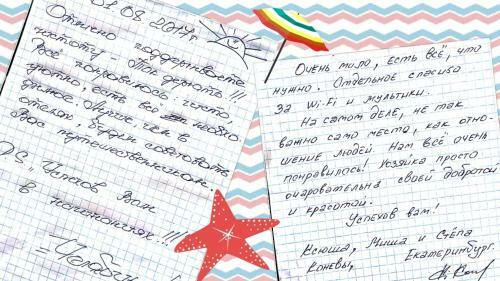 01.08.2014г.
Отлично поддерживаете
чистоту - Так держать!!!
Всё понравилось: чисто,
уютно, есть всё необхо-
димое. Лучше, чем в
отелях, будем советовать
Вас путешественникам.
PS "Успехов Вам
в начинаниях!!!!
Очень мило, есть всё, что
нужно. Отдельное спасибо
за Wi-Fi и мультики.
На самом деле, не так
важно само место, как отно-
шение людей. Нам всё очень
понравилось! Хозяйка просто
очаровательна своей добротой
и красотой.
Успехов вам!
Ксюша, Миша и Стёпа
Коневы, Екатеринбург.